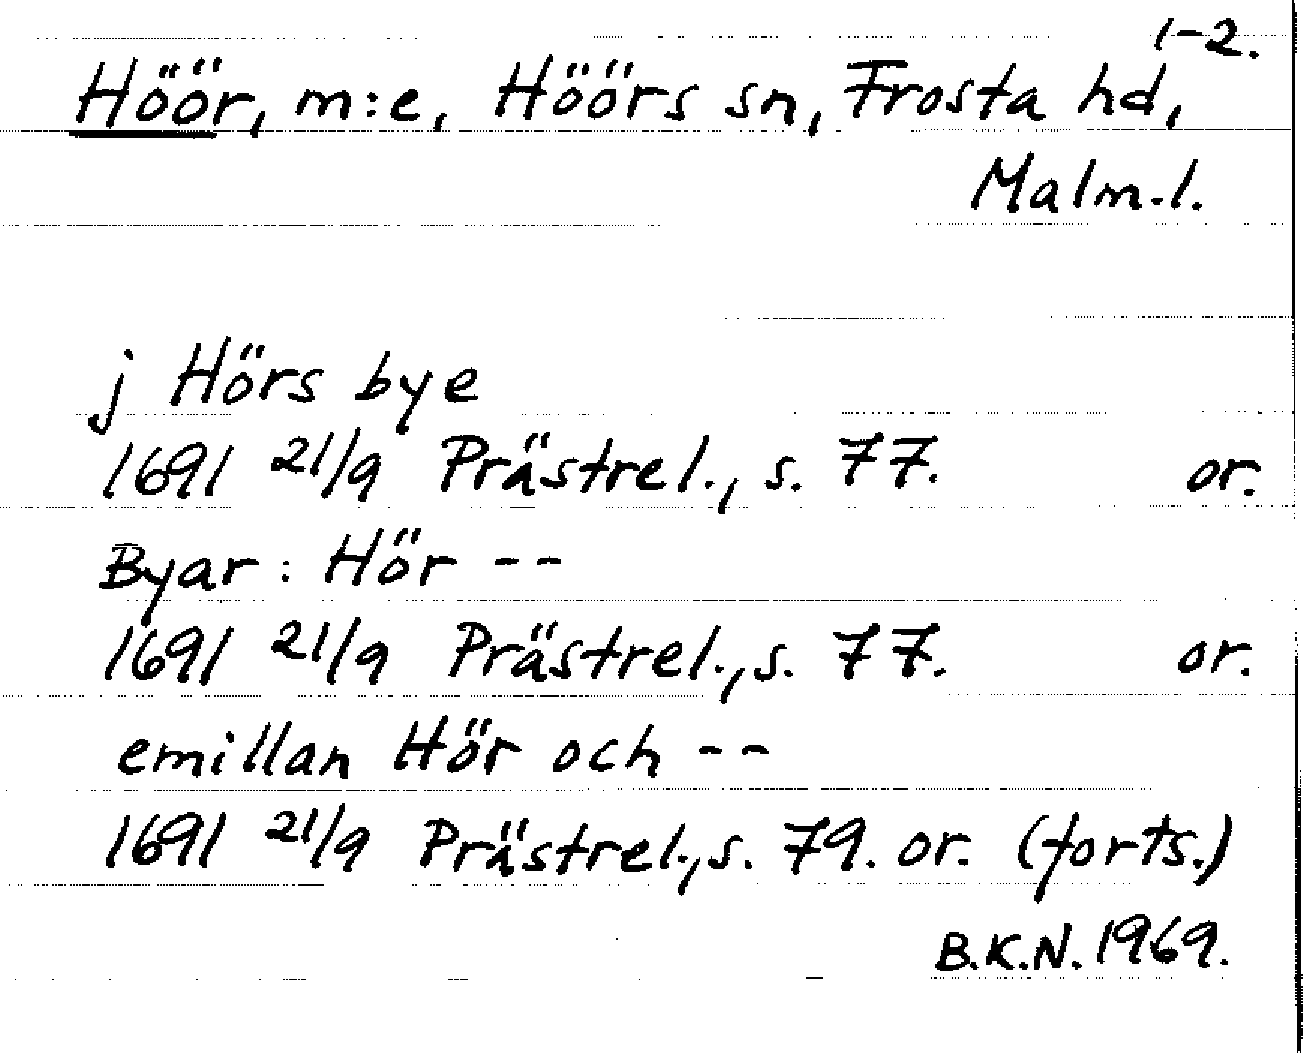 1-2.
Höör, m:e, Höörs sn, Frosta hd,
Malm.l.
j Hörs bye
1691 21/9 Prästrel., s. 77. or.
Byar: Hör --
1691 21/9 Prästrel., s. 77. or.
emillan Hör och --
1691 21/9 Prästrel., s. 79. or. (forts.)
B.K.N. 1969.